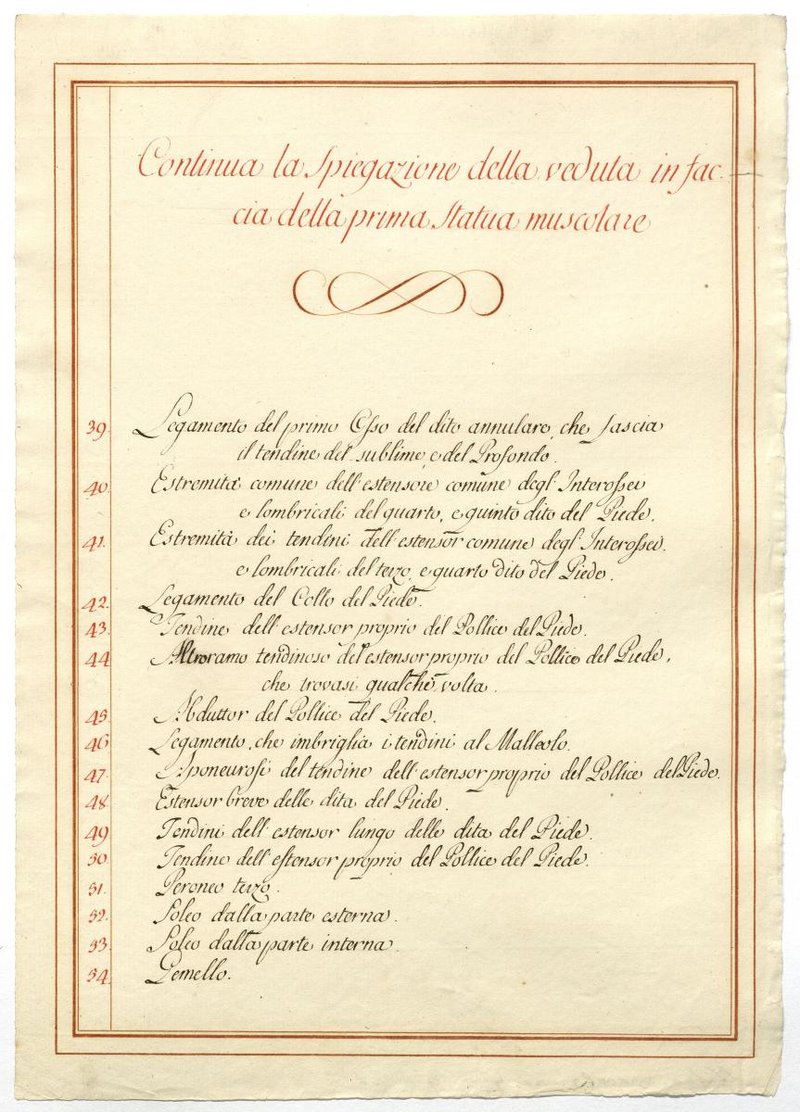 Continua la Spiegazione della veduta in fac-
cia della prima Statua muscolare
39. Legamento del primo Osso del dito annulare, che fascia
il tendine del sublime, e del Profondo.
40. Estremità comune dell'estensore comune degl'Interossei
e lombricali del quarto, e quinto dito del Piede.
41. Estremità dei tendini dell'estensor comune degl'Interossei.
e lombricali del terzo, e quarto dito del Piede.
42. Legamento del Collo del Piede.
43. Tendine dell'estensor proprio del Pollice del Piede.
44 Altro ramo tendinoso del estensor proprio del Pollice del Piede,
che trovasi qualche volta.
45. Adduttor del Pollice del Piede.
46 Legamento, che imbriglia i tendini al Malleolo.
47. Aponeurosi del tendine dell'estensor proprio del Pollice del Piede.
48. Estensor breve delle dita del Piede.
49 Tendini dell'estensor lungo delle dita del Piede.
50. Tendine dell'estensor proprio del Pollice del Piede.
51. Peroneo terzo.
52. Soleo dalla parte esterna.
53. Soleo dalla parte interna.
54. Gemello.